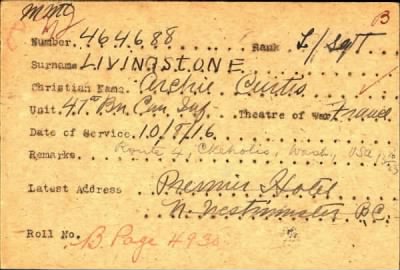 B
Number. 464688 Rank L/Sgt
Surname LIVINGSTONE
Christian Name. Archie Curtis
Unit. 47th Bn. Can. Inf. Theatre of War France
Date of Service. 10/8/16
Remarks. Route 4, Chehalis, Wash, USA,
Latest Address Premier Hotel
N. Westminster B.C.
Roll No. B. Page 4930